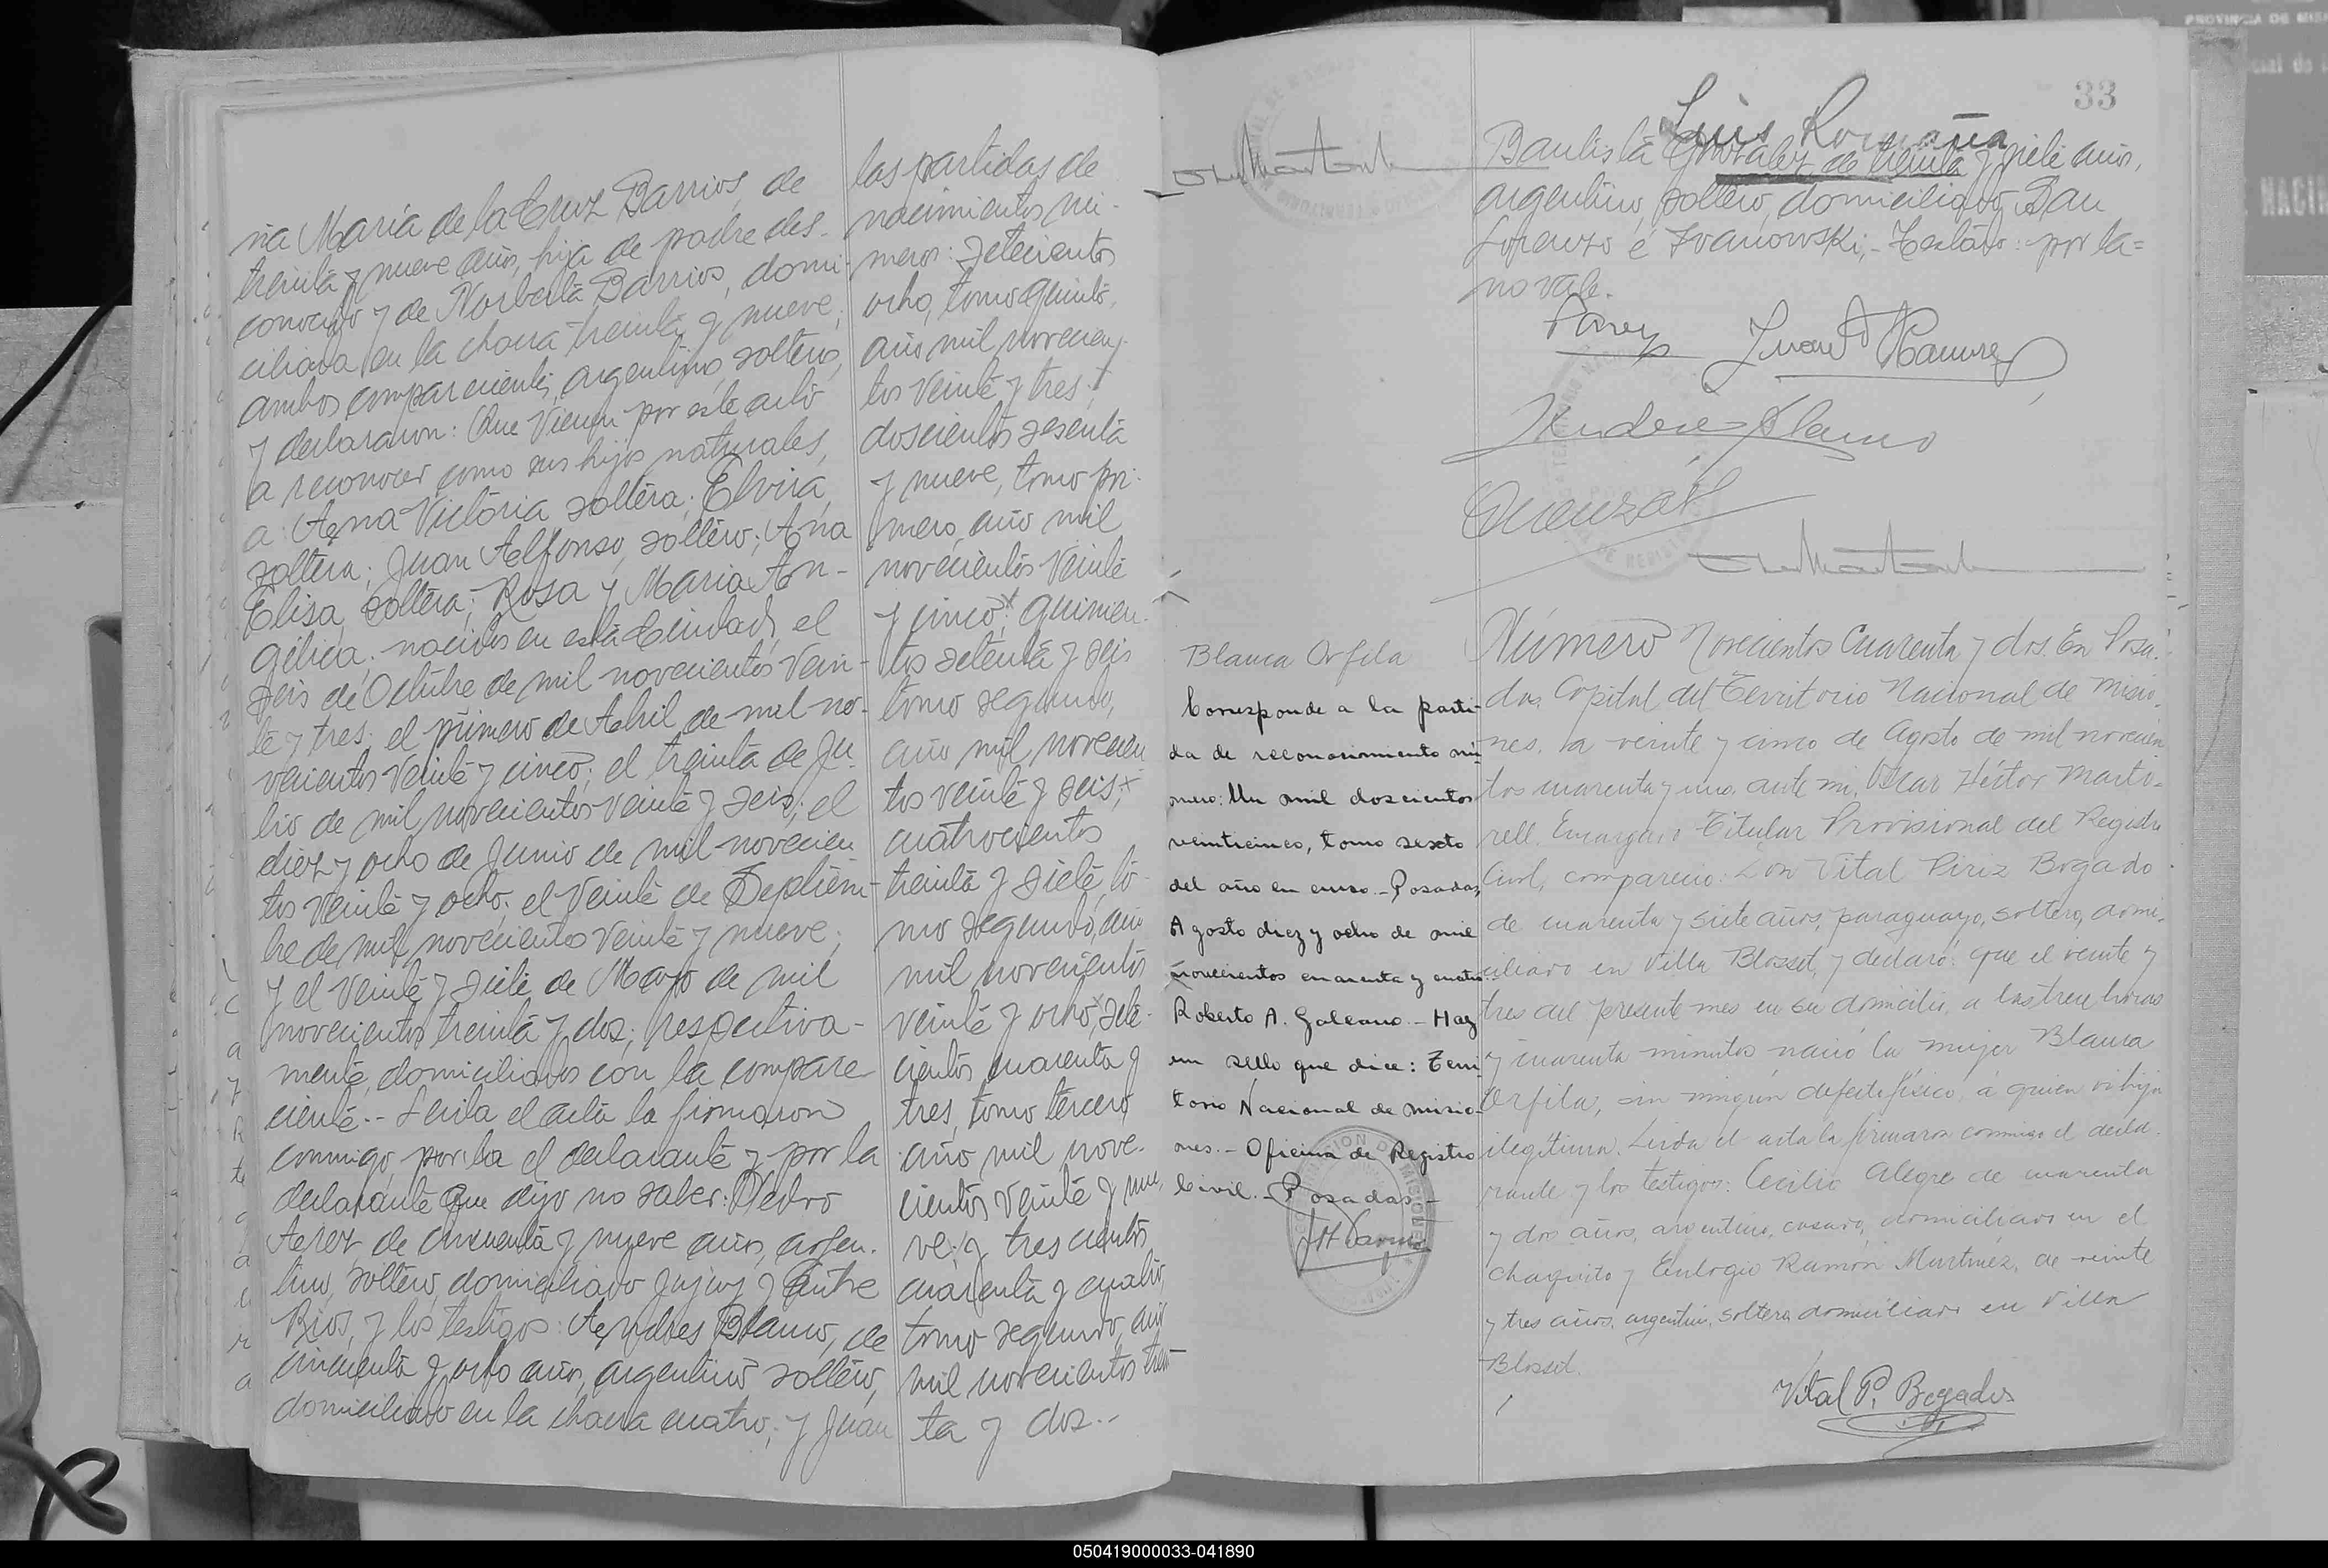 nia Maria de la Cruz Barrios, de
treinta y nueve años, hija de padre des-
conocido y de Norberta Barrios, domi-
ciliada en la chacra treinta y nueve;
ambos comparecientes, argentinos, solteros,
y declararon: Que vienen por este acto
a reconocer como sus hijos naturales,
a: Ana Victoria soltera; Elvira,
soltera; Juan Alfonso, soltero; Ana
Elisa, soltera; Rosa y Maria An-
gélica; nacidos en esta Ciudad, el
seis de Octubre de mil novecientos vein-
te y tres; el primero de Abril de mil no-
vecientos veinte y cinco; el treinta de Ju-
lio de mil novecientos veinte y seis; el
diez y ocho de Junio de mil novecien
tos veinte y ocho; el veinte de Septiem-
bre de mil novecientos veinte y nueve;
y el veinte y siete de Mayo de mil
novecientos treinta y dos; respectiva-
mente, domiciliados con la compare-
ciente.- Leida el acta la firmaron
conmigo, por la el declarante y por la
declarante que dijo no saber: Pedro
de cincuenta y nueve años, argen-
tino, soltero, domiciliado Jujuy y Entre
Rios, y los testigos: Andres Blanco, de
cincuenta y ocho años, argentino soltero,
domiciliado en la chacra cuatro; y Juan
las partidas de
nacimientos nú-
meros: setecientos
ocho, tomo quinto,
año mil novecien-
tos veinte y tres;
doscientos sesenta
y nueve, tomo pri-
mero, año mil
novecientos veinte
y cinco; quinien-
tos setenta y seis
tomo segundo,
año mil novecien
tos veinte y seis;
cuatrocientos
treinta y siete, to-
mo segundo, año
mil novecientos
veinte y ocho; sete-
cientos cuarenta y
tres, tomo tercero
año mil nove-
cientos veinte y nue
ve; y trescientos
cuarenta y cuatro,
tomo segundo, año
mil novecientos trein-
ta y dos.-
33
Luis Romaña
Bautista Gonzalez, de treinta y siete años,
argentino, soltero, domiciliado San
Lorenzo é Ivanowski;- Testado: por la=
no vale.
Andres Blanco
Blanca Orfila
Corresponde a la parti-
da de reconocimiento nú-
mero: Un mil doscientos
veinticinco, tomo sexto
del año en curso.- Posadas,
Agosto diez y ocho de mil
novecientos cuarenta y cuatro.-
Roberto A. Galeano.- Hay
un sello que dice: Terri-
torio Nacional de Misio-
nes.- Oficina de Registro
Civil.- Posadas.-
Número Novecientos Cuarenta y dos. En Posa-
das, Capital del Territorio Nacional de Misio-
nes, a veinte y cinco de Agosto de mil novecien
tos cuarenta y uno, ante mi, Oscar Héctor Marto-
rell, Encargado Titular Provisional del Registro
Civil, compareció: Don Vital Pérez Bogado
de cuarenta y siete años, paraguayo, soltero, domi-
ciliado en Villa Blosset, y declaró: que el veinte y
tres del presente mes en su domicilio, a las trece horas
y cuarenta minutos nació la mujer Blanca
Orfila, sin ningún defecto físico, a quien vi hija
ilegítima. Leida el acta la firmaron conmigo el decla-
rante y los testigos: Cecilio Alegre de cuarenta
y dos años, argentino, casado, domiciliado en el
Chaquito y Eulogio Ramón Martínez, de veinte
y tres años, argentino, soltero, domiciliado en Villa
Blosset.
Vital P. Bogado
050419000033-041890